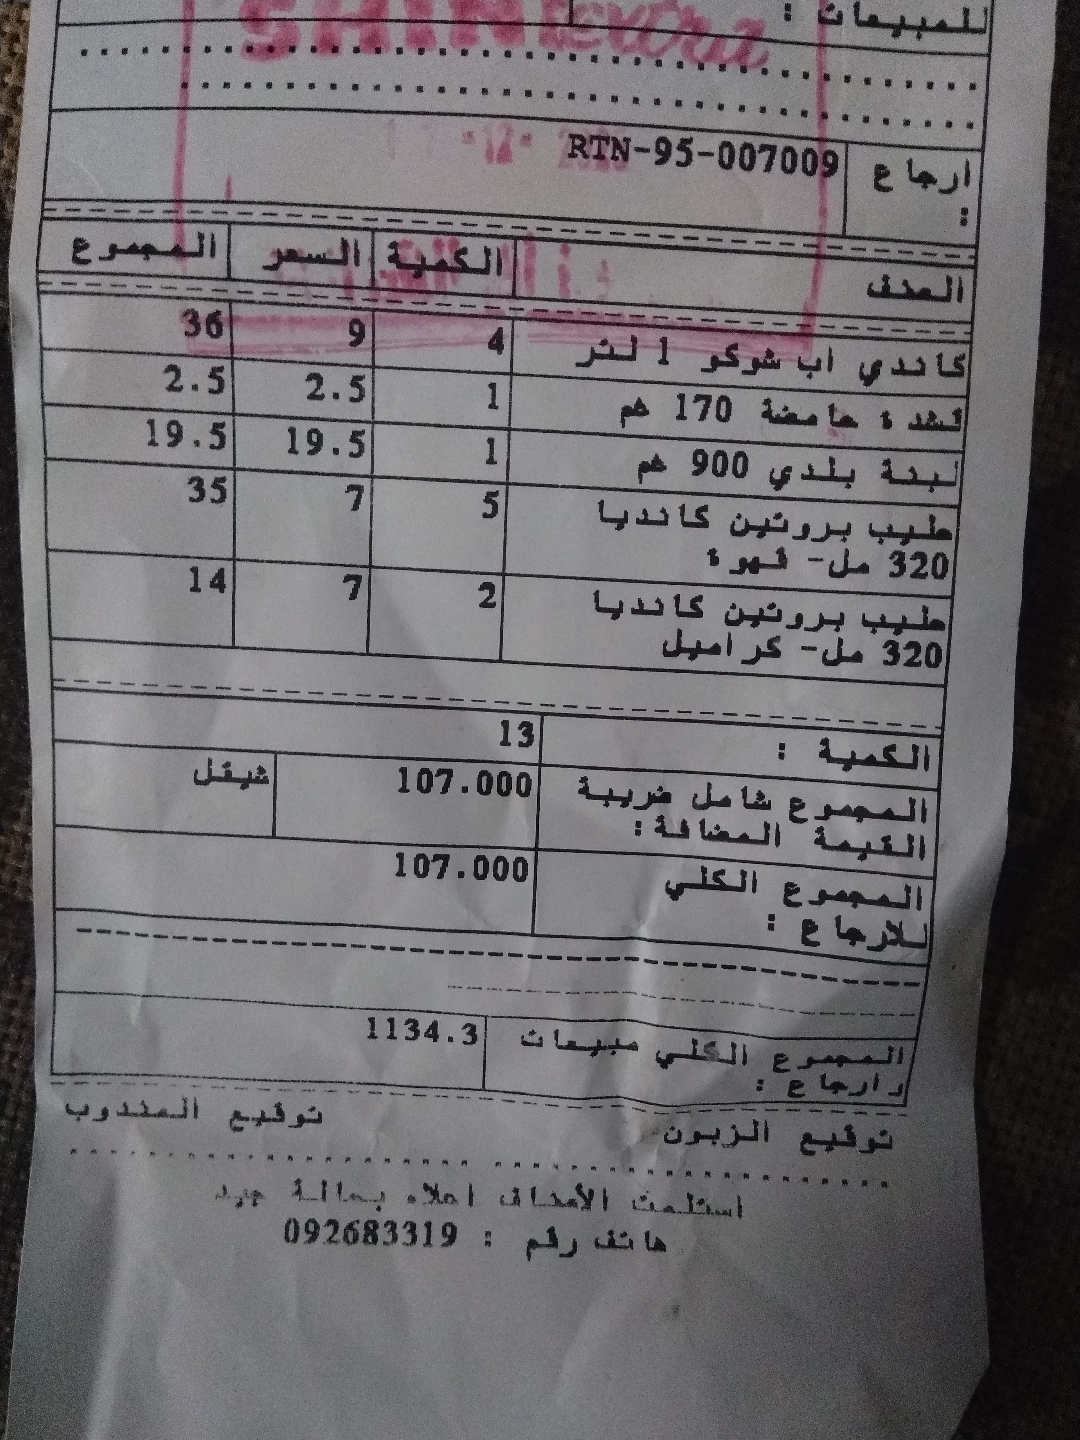 للمبيعات :
SHINE extra
ارجاع : RTN-95-007009
الصنف الكمية السعر المجموع
كاندي اب شوكو 1 لتر 4 9 36
قشدة حامضة 170 غم 1 2.5 2.5
لبنة بلدي 900 غم 1 19.5 19.5
حليب بروتين كانديا 5 7 35
320 مل- قهوة
حليب بروتين كانديا 2 7 14
320 مل- كراميل
الكمية : 13
المجموع شامل ضريبة 107.000 شيقل
القيمة المضافة:
المجموع الكلي 107.000
للارجاع :
المجموع الكلي مبيعات 1134.3
وارجاع :
توقيع الزبون توقيع المندوب
استلمت الأصناف اعلاه بحالة جيد
هاتف رقم : 092683319